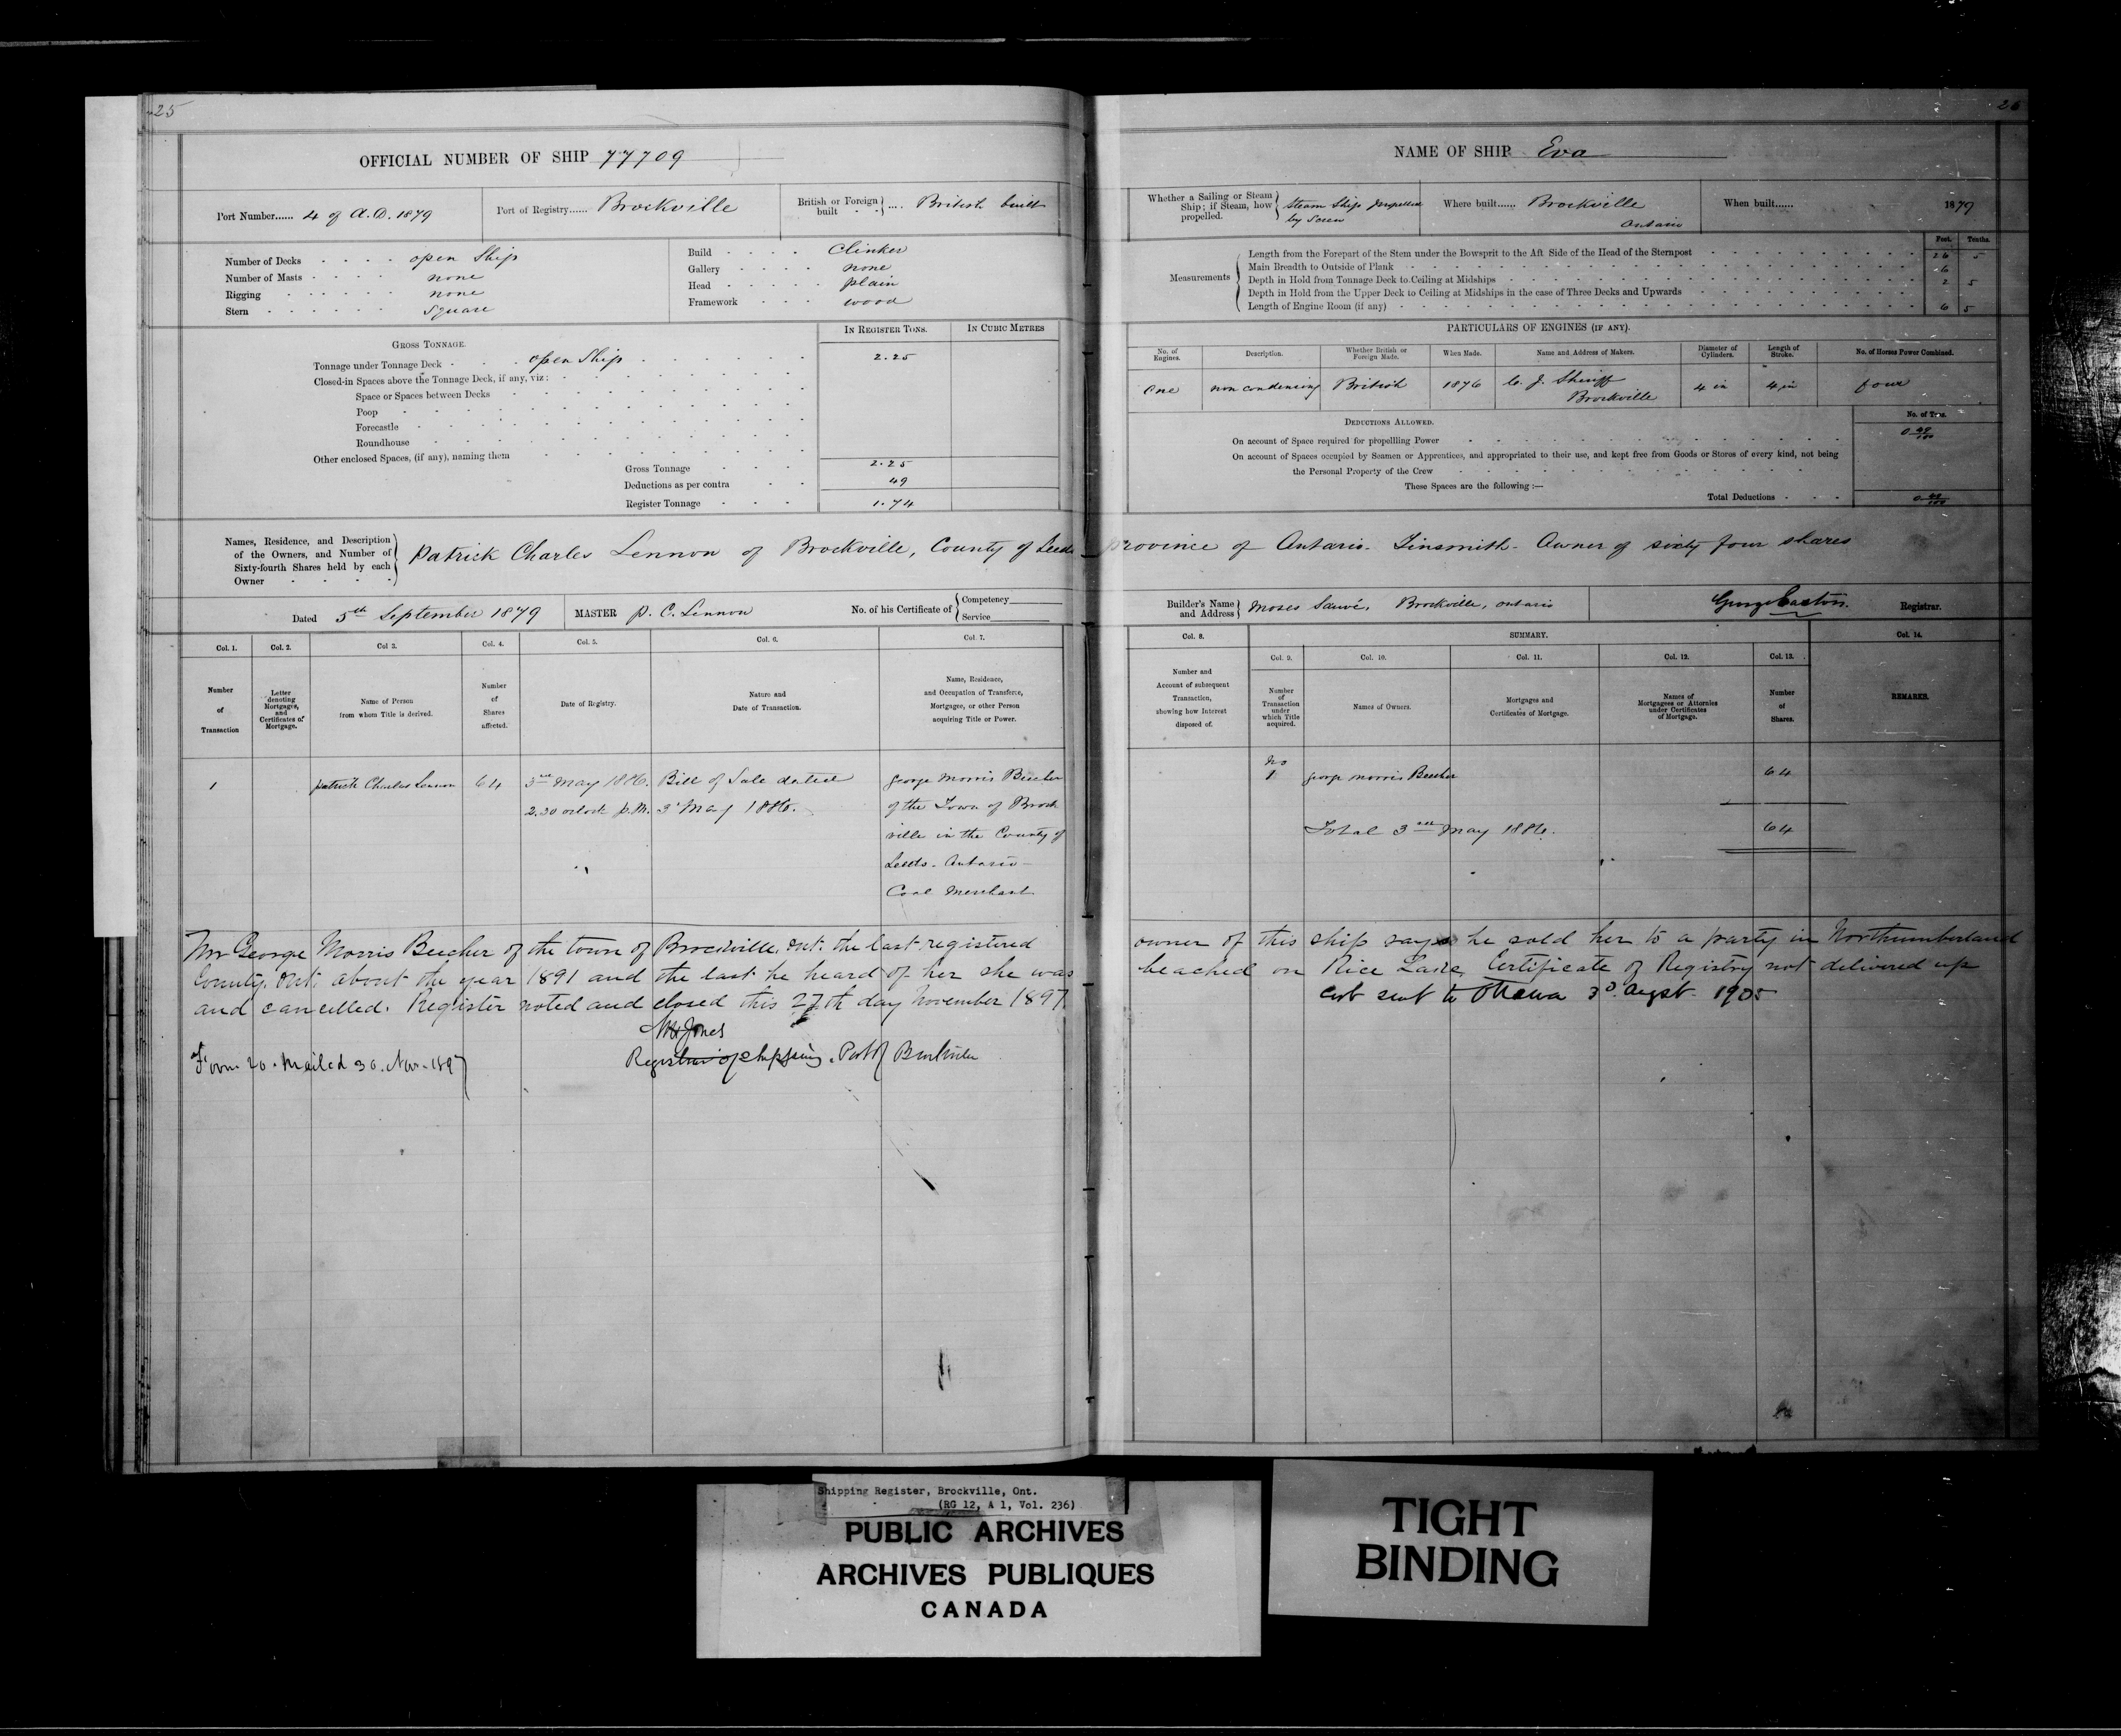 25
OFFICIAL NUMBER OF SHIP 77709
Port Number...... 4 of A.D. 1879
Port of Registry...... Brockville
British or Foreign built .... British built
Number of Decks open Ship
Number of Masts none
Rigging none
Stern Square
Build Clinker
Gallery none
Head plain
Framework wood
GROSS TONNAGE.
IN REGISTER TONS. IN CUBIC METRES
Tonnage under Tonnage Deck open Ship 2.25
Closed-in Spaces above the Tonnage Deck, if any, viz:
Space or Spaces between Decks
Poop
Forecastle
Roundhouse
Other enclosed Spaces, (if any), naming them
Gross Tonnage 2.25
Deductions as per contra 49
Register Tonnage 1.74
Names, Residence, and Description of the Owners, and Number of Sixty-fourth Shares held by each Owner
Patrick Charles Lennon of Brockville, County of Leeds
Dated 5th September 1879 MASTER P. C. Lennon No. of his Certificate of Competency Service
Col. 1. Col. 2. Col 3. Col. 4. Col. 5. Col. 6. Col. 7.
Number of Transaction
Letter denoting Mortgages, and Certificates of Mortgage.
Name of Person from whom Title is derived.
Number of Shares affected.
Date of Registry.
Nature and Date of Transaction.
Name, Residence, and Occupation of Transferee, Mortgagee, or other Person acquiring Title or Power.
1 Patrick Charles Lennon 64 3rd May 1886. Bill of Sale dated George Morris Beecher
2.30 oclock p.M. 3 May 1886. of the Town of Brock
ville in the County of
Leeds - Ontario -
Coal Merchant
Mr George Morris Beecher of the town of Brockville, Ont. the last registered
County, Ont. about the year 1891 and the last he heard of her she was
and cancelled. Register noted and closed this 27th day November 1897
Jones
Registrar of Shipping. Port of Brockville
Form 20. Mailed 30. Nov. 1897
26
NAME OF SHIP Eva
Whether a Sailing or Steam Ship; if Steam, how propelled. Steam Ship propelled by Screw
Where built...... Brockville Ontario
When built...... 1879
Measurements
Feet. Tenths.
Length from the Forepart of the Stem under the Bowsprit to the Aft Side of the Head of the Sternpost 26 5
Main Breadth to Outside of Plank 6
Depth in Hold from Tonnage Deck to Ceiling at Midships 2 5
Depth in Hold from the Upper Deck to Ceiling at Midships in the case of Three Decks and Upwards
Length of Engine Room (if any) 6 5
PARTICULARS OF ENGINES (IF ANY).
No. of Engines. Description. Whether British or Foreign Made. When Made. Name and Address of Makers. Diameter of Cylinders. Length of Stroke. No. of Horses Power Combined.
One non condensing British 1876 C. J. Sheriff Brockville 4 in 4 in four
DEDUCTIONS ALLOWED.
No. of Tons.
On account of Space required for propellling Power 0 49/100
On account of Spaces occupied by Seamen or Apprentices, and appropriated to their use, and kept free from Goods or Stores of every kind, not being
the Personal Property of the Crew
These Spaces are the following :—
Total Deductions 0 49/100
Province of Ontario - Tinsmith - Owner of sixty four shares
Builder's Name and Address Moses Sauvé, Brockville, Ontario
George Easton. Registrar.
Col. 8. SUMMARY. Col. 14.
Col. 9. Col. 10. Col. 11. Col. 12. Col. 13.
Number and Account of subsequent Transaction, showing how Interest disposed of.
Number of Transaction under which Title acquired.
Names of Owners.
Mortgages and Certificates of Mortgage.
Names of Mortgagees or Attornies under Certificates of Mortgage.
Number of Shares.
REMARKS.
No
1 George Morris Beecher 64
Total 3rd May 1886. 64
owner of this ship says he sold her to a party in Northumberland
beached on Rice Lake, Certificate of Registry not delivered up
Cert sent to Ottawa 3d. Augst. 1905
Shipping Register, Brockville, Ont.
(RG 12, A 1, Vol. 236)
PUBLIC ARCHIVES
ARCHIVES PUBLIQUES
CANADA
TIGHT
BINDING